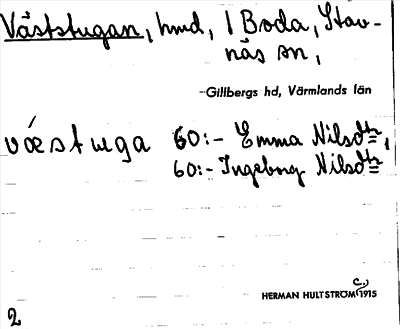 Väststugan, hmd, i Boda, Stav-
näs sn,
Gillbergs hd, Värmlands län
vǽstuga 60:- Emma Nilsdtr,
60:- Ingeborg Nilsdtr
HERMAN HULTSTRÖM c. 1915
2